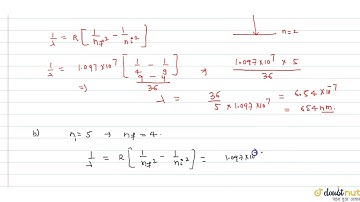 1/λ = R [ 1/nf² - 1/ni² ]
n=2
1/λ = 1.097×10⁷ [ 1/4 - 1/9 ] ⇒ 1.097×10⁷ × 5 / 36
⇒ 9-4 / 36
λ = 36 / 5 × 1.097×10⁷ = 6.54×10⁻⁷
= 654 nm.
b) ni=5 → nf=4.
1/λ = R [ 1/nf² - 1/ni² ] = 1.097×10
doubtnut